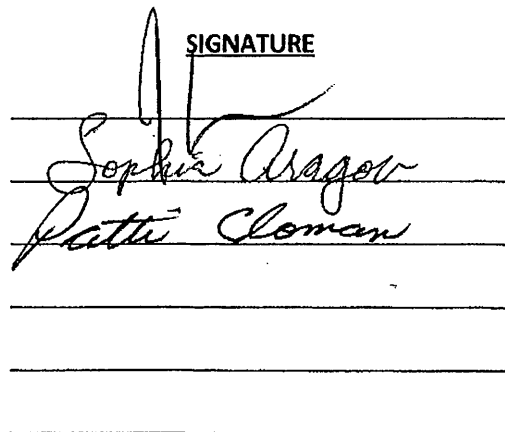 SIGNATURE
Sophia Aragon
Patti Cloman